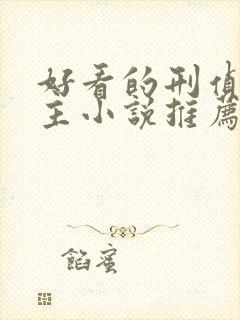 好看的刑偵
主小說推薦
餡蜜